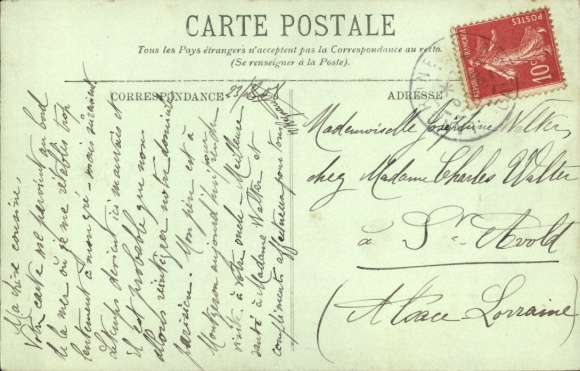 CARTE POSTALE
Tous les Pays étrangers n'acceptent pas la Correspondance au recto.
(Se renseigner à la Poste).
CORRESPONDANCE
ADRESSE
Ma chère cousine,
Votre carte me parvient au bord
de la mer où je me rétablis trop
lentement à mon gré - mais sûrement
Le temps devient ici mauvais et
il est probable que nous
allons réintégrer notre domicile
parisien. Mon père est à
Montgeron aujourd'hui pour rendre
visite à votre oncle. Meilleure
santé à Madame Walter et
compliments affectueux pour vous
Mademoiselle Joséphine Walter,
chez Madame Charles Walter
à St. Avold
(Alsace Lorraine)
POSTES
10c